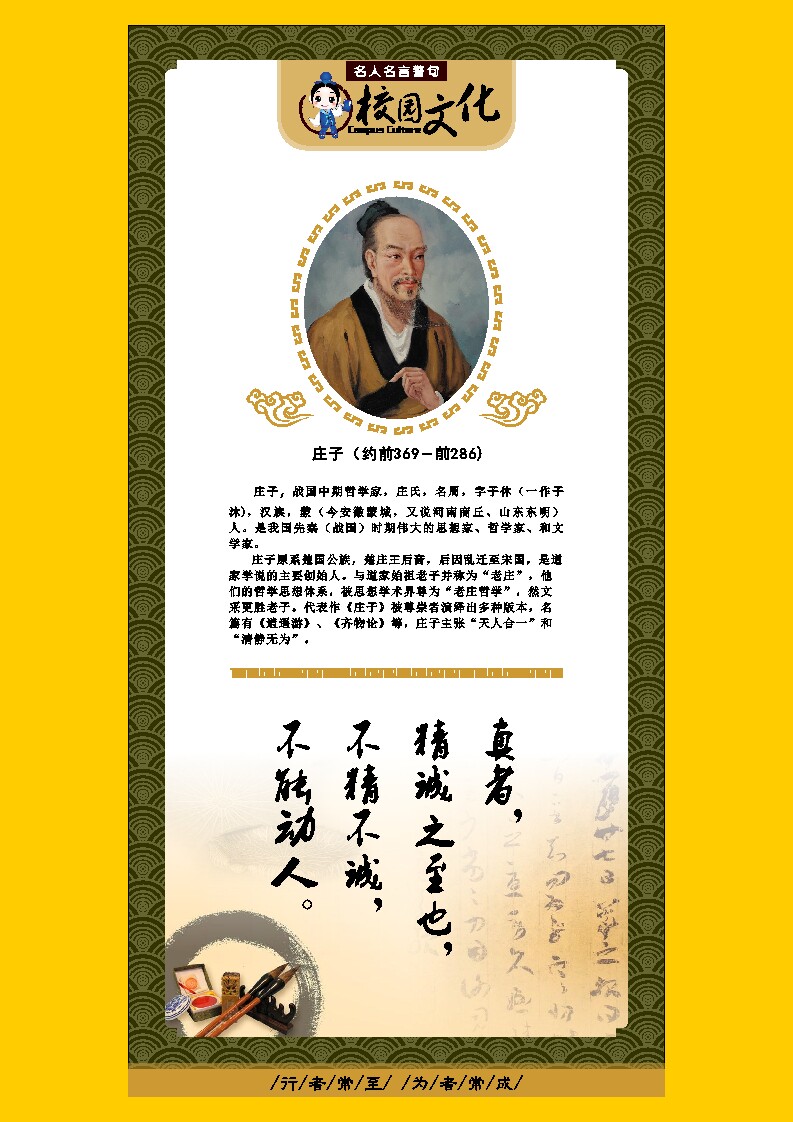 名人名言警句
校园文化
Campus Culture
庄子（约前369－前286)
庄子，战国中期哲学家，庄氏，名周，字子休（一作子
沐)，汉族，蒙（今安徽蒙城，又说河南商丘、山东东明）
人。是我国先秦（战国）时期伟大的思想家、哲学家、和文
学家。
庄子原系楚国公族，楚庄王后裔，后因乱迁至宋国，是道
家学说的主要创始人。与道家始祖老子并称为“老庄”，他
们的哲学思想体系，被思想学术界尊为“老庄哲学”，然文
采更胜老子。代表作《庄子》被尊崇者演绎出多种版本，名
篇有《逍遥游》、《齐物论》等，庄子主张“天人合一”和
“清静无为”。
真者，
精诚之至也，
不精不诚，
不能动人。
/行/者/常/至/ /为/者/常/成/